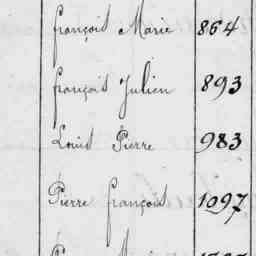 françois Marie 864
françois Julien 893
Louis Pierre 983
Pierre françois 1097